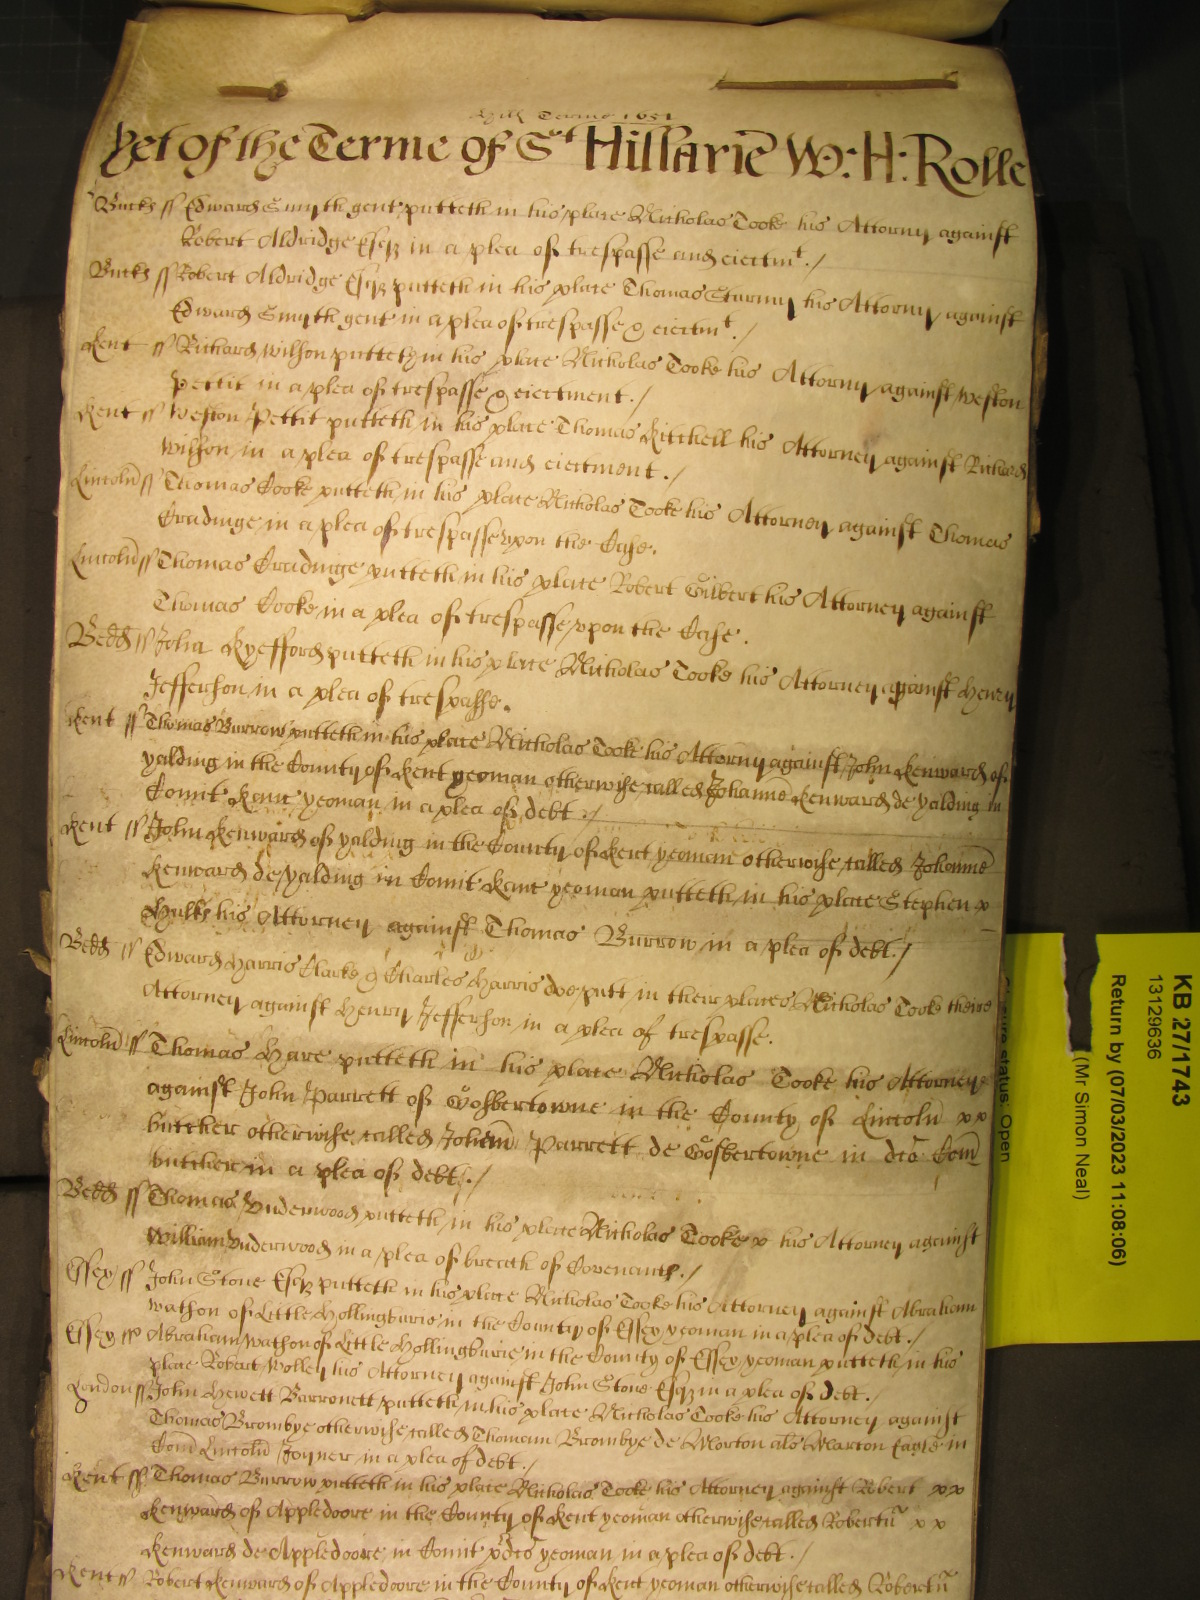 Hill Terme 1651
Yet of the Terme of St Hillarie W: H: Rolle
Bucks ss Edward Smyth gent putteth in his place Nicholas Cooke his Attorny against
Robert Aldridge Esqr in a plea of trespasse and eiectmt./
Bucks ss Robert Aldridge Esqr putteth in his place Thomas Sturmy his Attorny against
Edward Smyth gent in a plea of trespasse & eiectmt./
Kent ss Richard Wilson putteth in his place Nicholas Cooke his Attorny against Weston
Pettit in a plea of trespasse & eiectment./
Kent ss Weston Pettit putteth in his place Thomas Kitchell his Attorney against Richard
Wilson in a plea of trespasse and eiectment./
Lincoln ss Thomas Cooke putteth in his place Nicholas Cooke his Attorney against Thomas
Cradinge in a plea of trespasse vpon the Case.
Lincoln ss Thomas Cradinge putteth in his place Robert Gilbert his Attorney against
Thomas Cooke in a plea of trespasse vpon the Case.
Bedd ss John Kyefford putteth in his place Nicholas Cooke his Attorney against Henry
Jefferson in a plea of trespasse.
Kent ss Thomas Burrow putteth in his place Nicholas Cooke his Attorny against John Kenward of
yalding in the County of Kent yeoman otherwise called Johanne Kenward de yalding in
Comit Kanc yeoman in a plea of debt ./
Kent ss John Kenward of yalding in the County of Kent yeoman otherwise called Johanne
Kenward de yalding in Comit Kanc yeoman putteth in his place Stephen x
Hulks his Attorney against Thomas Burrow in a plea of debt./
Bedd ss Edward Harris Clarke & Charles Harris doe putt in their places Nicholas Cooke theire
Attorney against Henry Jefferson in a plea of trespasse.
Lincoln ss Thomas Hare putteth in his place Nicholas Cooke his Attorney
against John Parrett of Gosbertowne in the County of Lincoln x x
butcher otherwise called Johem Parrett de Gosbertowne in dco Com
butcher in a plea of debt./
Bedd ss Thomas Vnderwood putteth in his place Nicholas Cooke x his Attorney against
William Vnderwood in a plea of breach of Covenante./
Essex ss John Stone Esqr putteth in his place Nicholas Cooke his Attorney against Abraham
Wathon of Little Hollingburie in the County of Essex yeoman in a plea of debt./
Essex ss Abraham Wathon of Little Hollingburie in the County of Essex yeoman putteth in his
place Robert Wolley his Attorney against John Stone Esqr in a plea of debt./
London ss John Hewett Barronett putteth in his place Nicholas Cooke his Attorney against
Thomas Brombye otherwise called Thomam Brombye de Morton als Marton in
Com Lincoln Joyner in a plea of debt./
Kent ss Thomas Burrow putteth in his place Nicholas Cooke his Attorney against Robert xx
Kenward of Appledoore in the County of Kent yeoman otherwise called Robertu x x
Kenward de Appledoore in Comit pdco yeoman in a plea of debt./
Kent ss Robert Kenward of Appledoore in the County of Kent yeoman otherwise called Robertu
KB 27/1743
13129636
Return by (07/03/2023 11:08:06)
(Mr Simon Neal)
status: Open